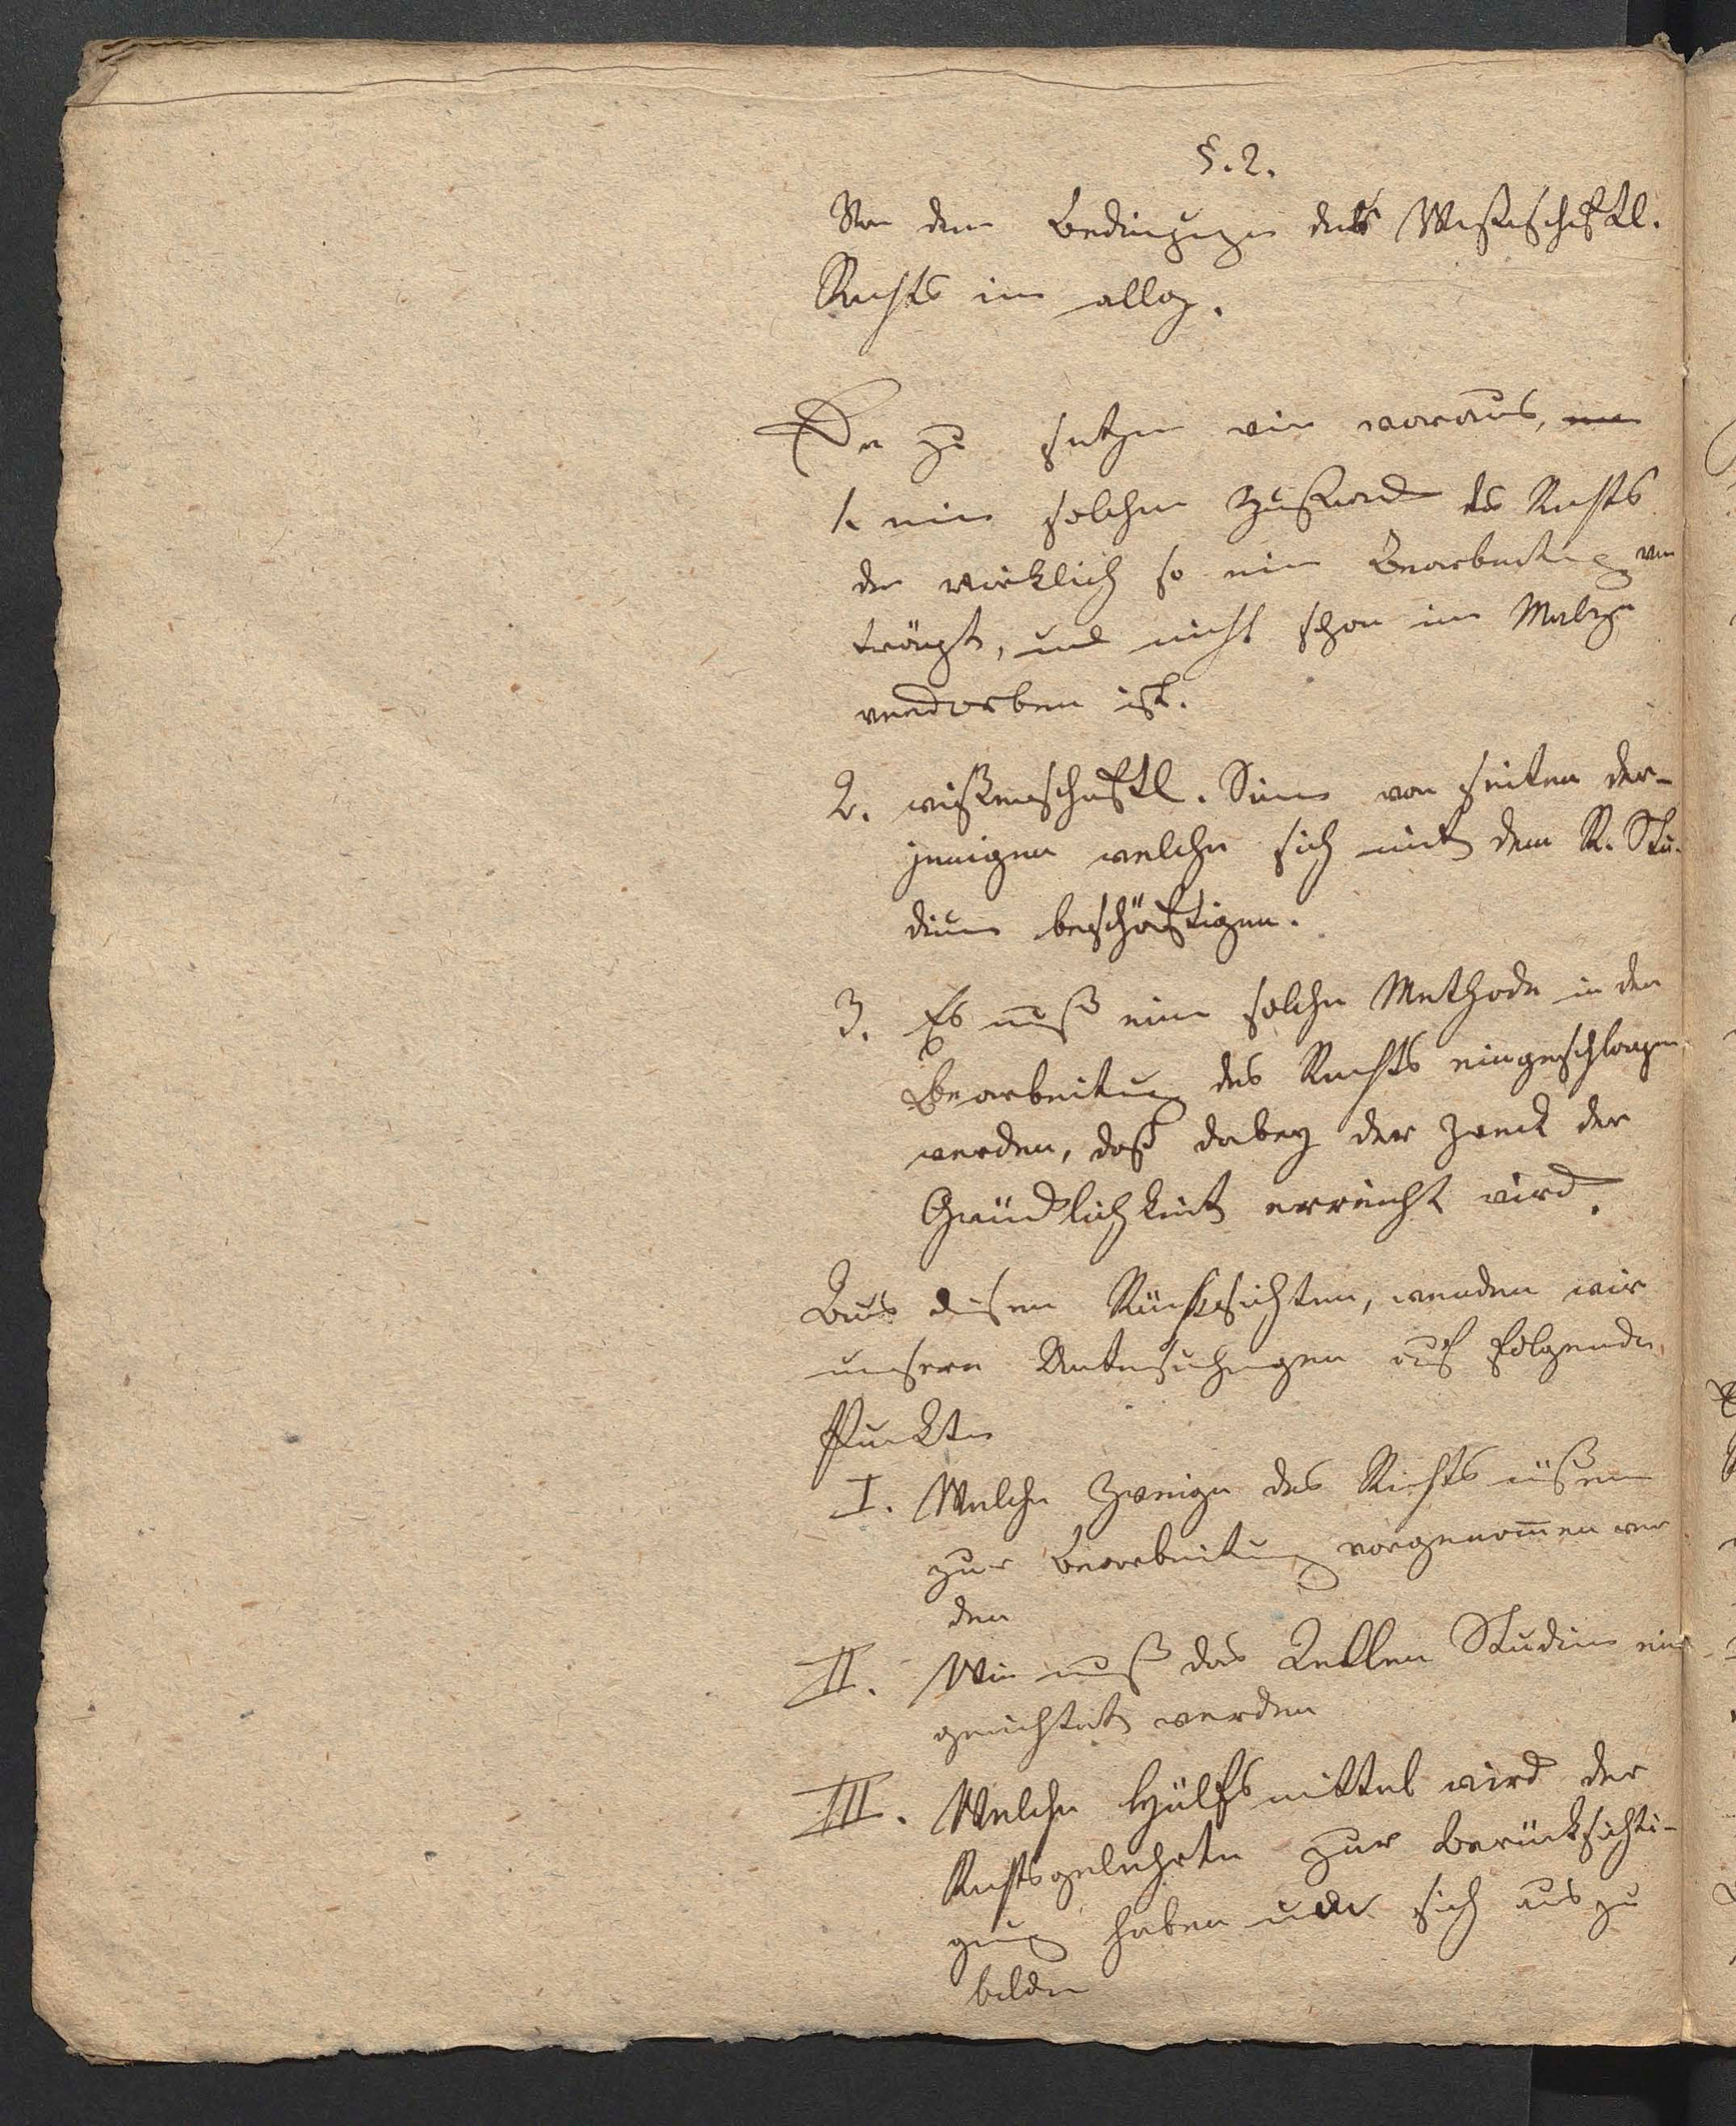 §. 2.
Von den Bedingungen des Wißenschaftl.
Rechts im allg.
Da zu setzen wir voraus,
1. einen solchen Zustand des Rechts
der wirklich so eine Bearbeitung ver
trägt, und nicht schon im
verdorben ist.
2. wißenschaftl. Sinn von seiten der-
jenigen welche sich mit dem R. Stu-
dium beschäftigen.
3. Es muß eine solche Methode in der
Bearbeitung des Rechts eingeschlagen
werden, daß dabey der Zweck der
Gründlichkeit erreicht wird.
Aus diesen Rücksichten, wenden wir
unsere Untersuchungen auf folgende
Punkte
I. Welche Zweige des Rechts müßen
zur Bearbeitung vorgenom̄en wer
den
II. Wie muß das Quellen Studium ein
gerichtet werden
III. Welche Hülfsmittel wird der
Rechtsgelehrte zur Berücksichti-
gung haben um sich aus zu
bilden